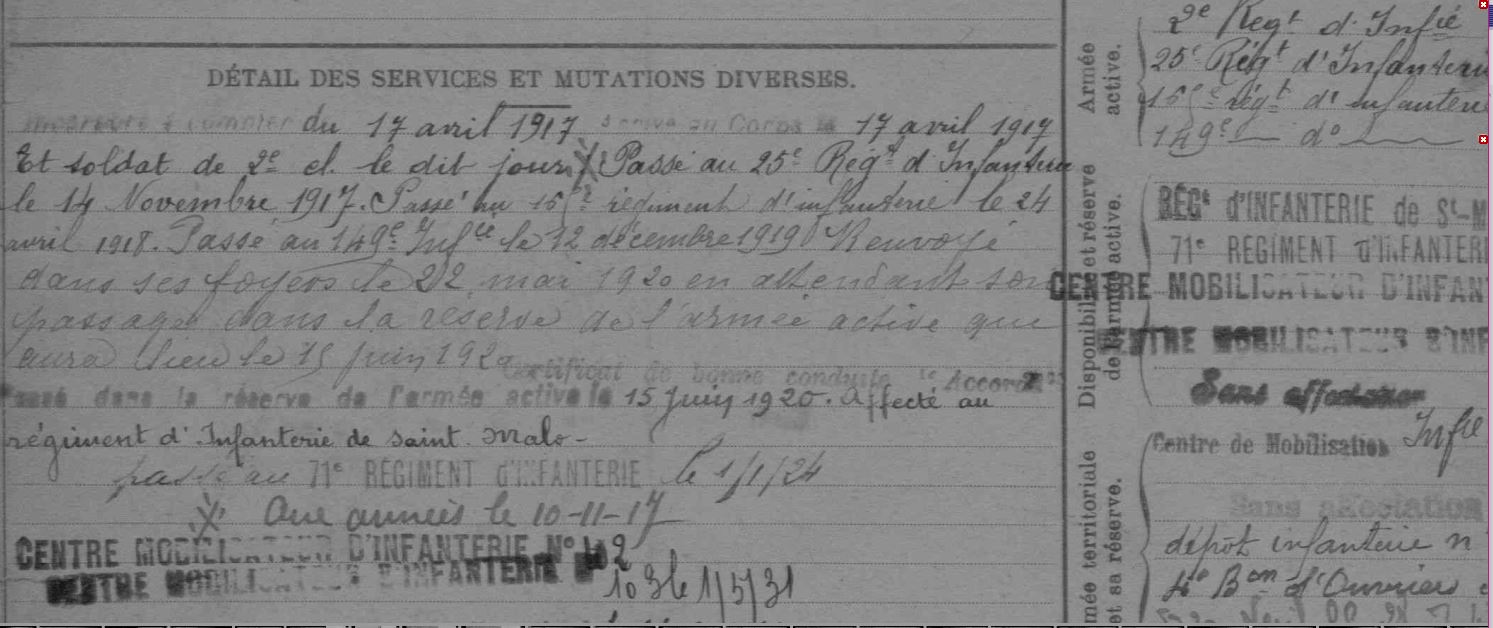 DÉTAIL DES SERVICES ET MUTATIONS DIVERSES.
Incorporé à compter du 17 avril 1917 Arrivé au Corps le 17 avril 1917
Et soldat de 2e cl. le dit jour. Passé au 25e Régt d'Infanterie
le 14 Novembre 1917. Passé au régiment d'infanterie le 24
avril 1918. Passé au 149e Infie le 12 décembre 1919 Renvoyé
dans ses foyers le 22 mai 1920 en attendant son
passage dans la réserve de l'armée active qui
aura lieu le 15 juin 1920
Certificat de bonne conduite "Accordé"
Passé dans la réserve de l'armée active le 15 Juin 1920. Affecté au
régiment d'Infanterie de Saint. Malo-
passé au 71e RÉGIMENT d'INFANTERIE le 1/1/24
Aux armées le 10-11-17
CENTRE MOBILISATEUR D'INFANTERIE No
CENTRE MOBILISATEUR D'INFANTERIE No 103 le 1/5/31
Armée active.
2e Regt d'Infie
25e Régt d'Infanterie
régt d'infanterie
149e — do —
Disponibilité et réserve de l'armée active.
RÉGt d'INFANTERIE de St-M
71e RÉGIMENT d'INFANTERI
CENTRE MOBILISATEUR D'INFAN
CENTRE MOBILISATEUR D'INF
Sans affectation
mée territoriale et sa réserve.
Centre de Mobilisation Infie
Sans affectation
dépôt infanterie n
4e Bon d'Ouvriers